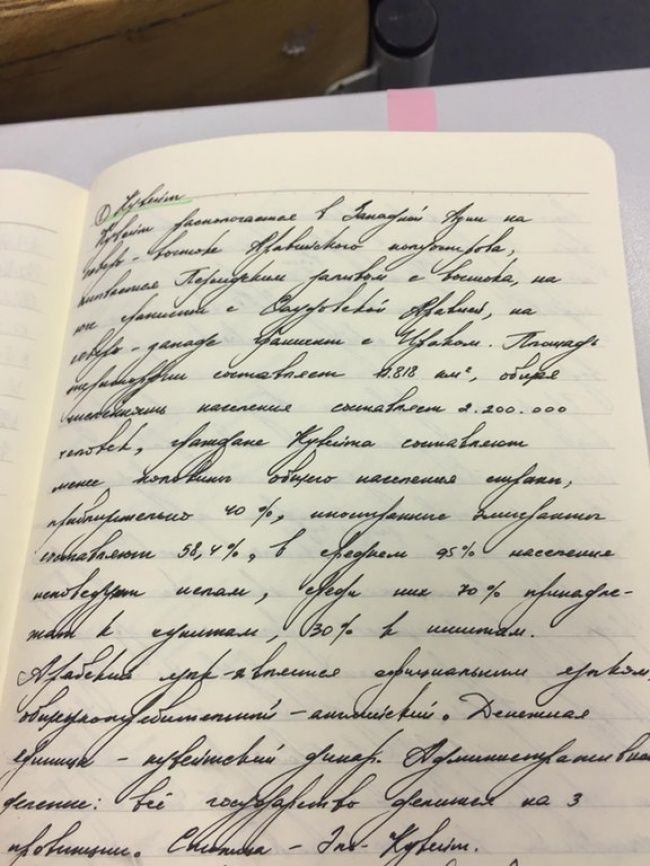 ① Кувейт
Кувейт располагается в Западной Азии на
северо-востоке Аравийского полуострова,
омывается Персидским заливом с востока, на
юге граничит с Саудовской Аравией, на
северо-западе граничит с Ираком. Площадь
территории составляет 17.818 км², общая
численность населения составляет 2.200.000
человек, граждане Кувейта составляют
менее половины общего населения страны,
приблизительно 40%, иностранные эмигранты
составляют 58,4%, в среднем 95% населения
исповедуют ислам, среди них 70% принадле-
жат к суннитам, 30% к шиитам.
Арабский язык является официальным языком,
общеупотребительной - английский. Денежная
единица - кувейтский динар. Административное
деление: всё государство делится на 3
провинции. Столица - Эль-Кувейт.